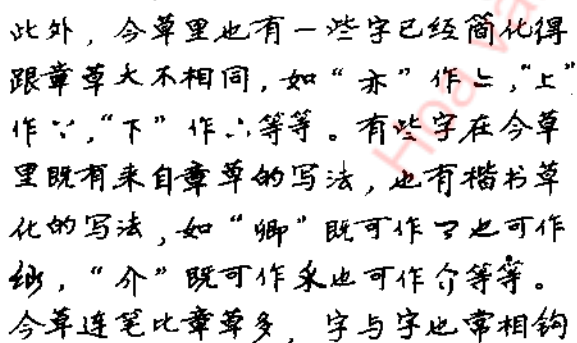 此外，今草里也有一些字已经简化得
跟章草大不相同，如“亦”作，“上”
作∵，“下”作∴等等。有些字在今草
里既有来自章草的写法，也有楷书草
化的写法，如“卿”既可作也可作
，“介”既可作也可作等等。
今草连笔比章草多，字与字也常相钩
Hoa va